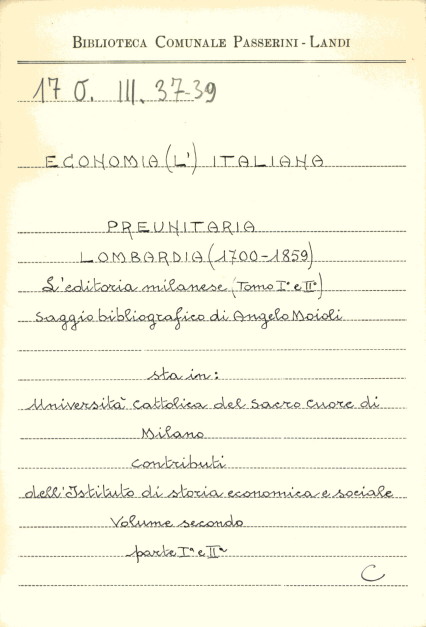 BIBLIOTECA COMUNALE PASSERINI - LANDI
17 O. III. 37-39
ECONOMIA (L') ITALIANA
PREUNITARIA
LOMBARDIA (1700-1859)
L'editoria milanese (Tomo I° e II°)
Saggio bibliografico di Angelo Moioli
sta in:
Università Cattolica del Sacro Cuore di
Milano
Contributi
dell'Istituto di storia economica e sociale
Volume secondo
parte Iª e IIª
C